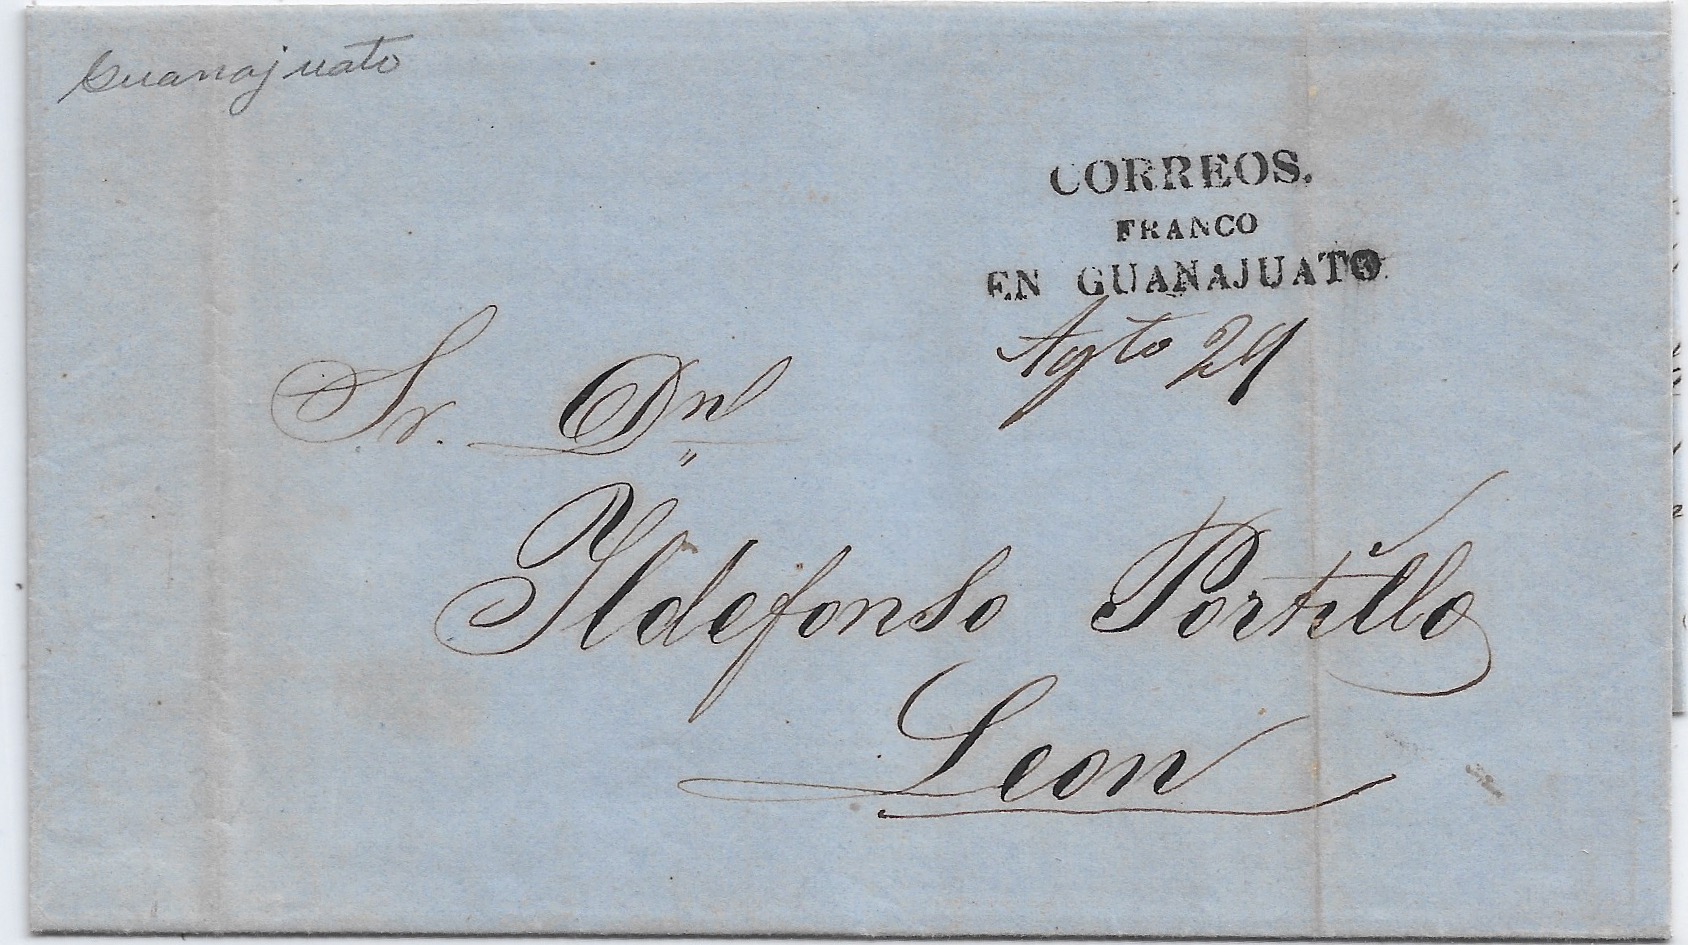 Guanajuato
CORREOS.
FRANCO
EN GUANAJUATO
Agto 29
Sr. Dn
Yldefonso Portillo
Leon